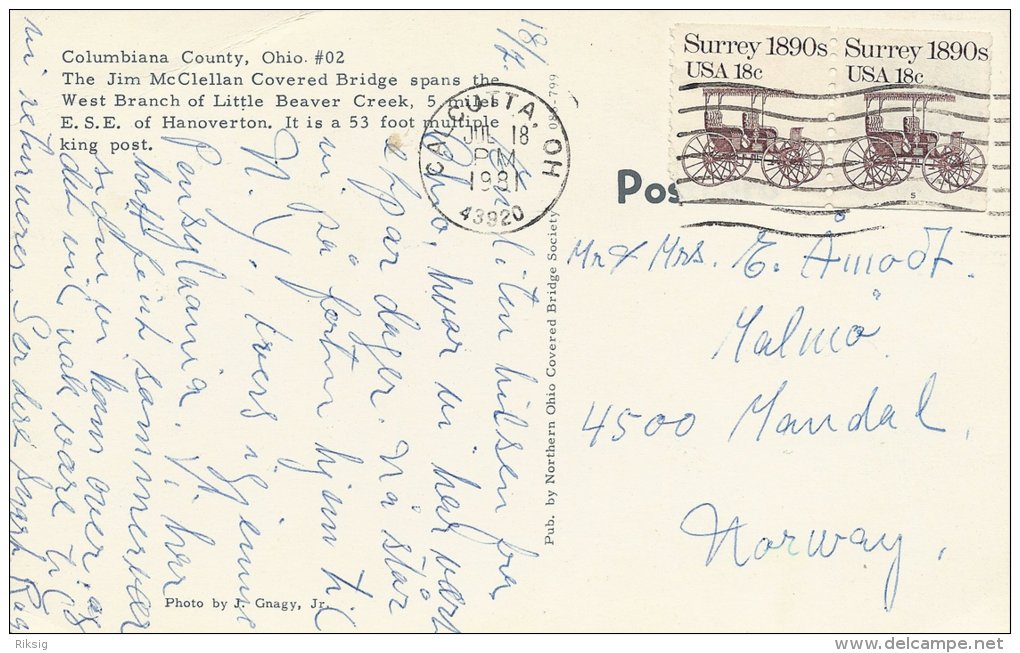 Columbiana County, Ohio. #02
The Jim McClellan Covered Bridge spans the
West Branch of Little Beaver Creek, 5 miles
E.S.E. of Hanoverton. It is a 53 foot multiple
king post.
18/7.
En liten hilsen fra
Ohio, hvor vi har vært
et par dager. Nå står
vi på farten hjem til
N.Y., tvers igjennom
Pensylvania. Vi har
hatt fint sommervær
siden vi kom over, og
det vil nok være til
vi returnerer. Ser dere snart
Photo by J. Gnagy, Jr.
Pub. by Northern Ohio Covered Bridge Society
CALCUTTA, OH
JUL 18
PM
1981
43920
Surrey 1890s
USA 18c
Surrey 1890s
USA 18c
Pos
Mr & Mrs. E. Åmodt.
Malmö
4500 Mandal,
Norway.
Riksig
www.delcampe.net